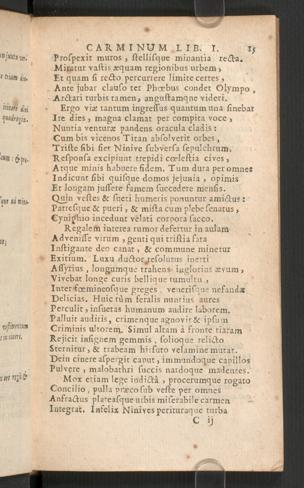 CARMINUM LIB. I. 35
Prospexit muros, stellisque minantia tecta.
Miratur vastis æquam regionibus urbem,
Et quam si recto percurrere limite certes,
Ante jubar clauso ter Phœbus condet Olympo,
Arctari turbis tamen, angustamque videri.
Ergo viæ tantum ingressus quantum una sinebat
Ire dies, magna clamat per compita voce,
Nuntia venturæ pandens oracula cladis:
Cum bis vicenos Titan absolverit orbes,
Triste sibi fiet Ninive subversa sepulchrum.
Responsa excipiunt trepidi cœlestia cives,
Atque minis habuere fidem. Tum dura per omnes
Indicunt sibi quisque domos jejunia, opimis
Et longam jussere famem succedere mensis.
Quin vestes & sueti humeris ponuntur amictus:
Patresque & pueri, & mista cum plebe senatus,
incedunt velati corpora sacco.
Regalem interea rumor defertur in aulam
Advenisse virum, genti qui tristia fata
Instigante deo canat, & commune minetur
Exitium. Luxu ductor resolutus inerti
Assyrius, longumque trahens inglorius ævum,
Vivebat longe curis bellique tumultu,
Inter fœmineosque greges, venerisque nefandæ
Delicias. Huic tùm feralis nuntius aures
Perculit, insuetas humanum audire laborem.
Palluit auditis, crimenque agnovit & ipsum
Criminis ultorem. Simul altam à fronte tiaram
Rejicit insignem gemmis, solioque relicto
Sternitur, & trabeam hirsuto velamine mutat.
Dein cinere aspergit caput, immundoque capillos
Pulvere, malobathri succis nardoque madentes.
Mox etiam lege indictâ, procerumque rogato
Concilio, pulla præco sub veste per omnes
Anfractus plateasque urbis miserabile carmen
Integrat. Infelix Ninives perituraque turba
C ij